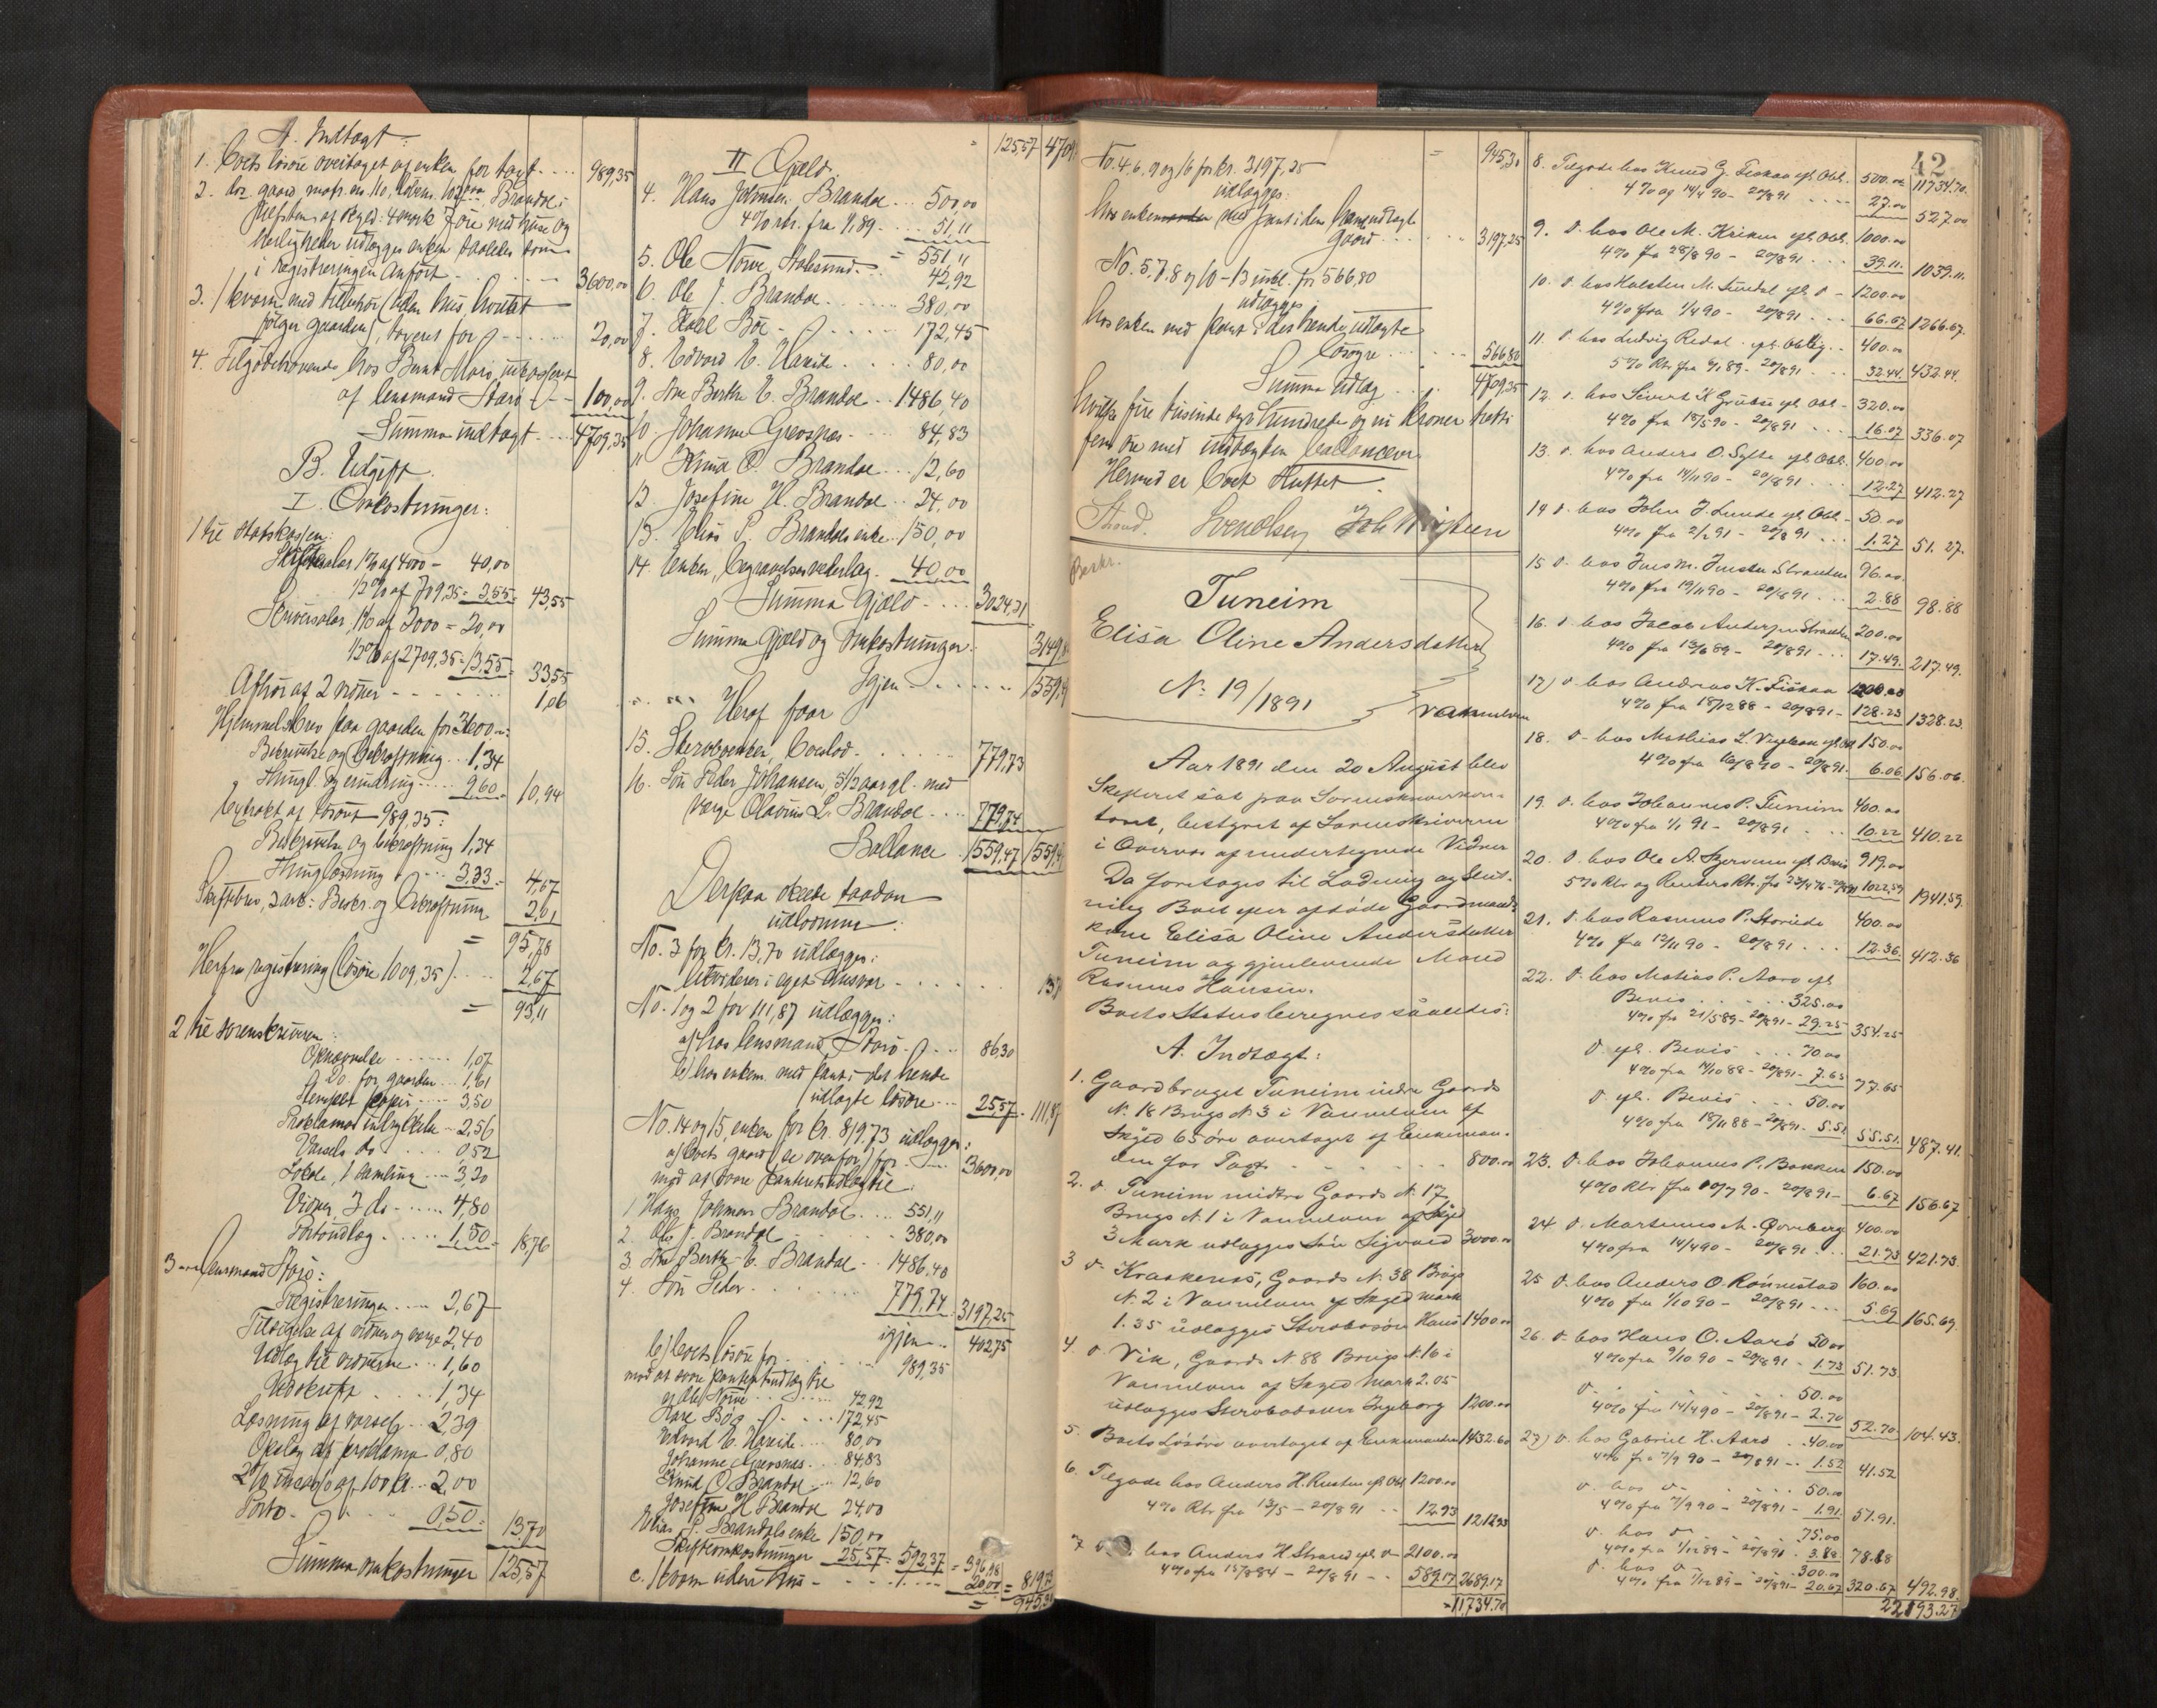 A. Indtægt:
1. Boets løsøre overtaget af enken for taxt 989,35
2. do. gaard matr. en. 10, Brandal
hælften af skyld. 4 mark 7 øre med huse og
herligheder udlægges enken saaledes som
i registreringen anført 3600,00
3. 1 kværn med tilbehør (uden hus, hvilket
følger gaarden), for 20,00
4. Tilgodehavende hos Bernt Moro,
af lensmand Starø 100,00
Summa indtægt 4709,35
B. Udgift.
I Omkostninger:
1 til statskassen:
Skiftesalær 1% af 4000 = 40,00
1/2% af 709,35 = 3,55 43,55
Skriversalær, 1% af 2000 = 20,00
1/2% af 2709,35 = 13,55 33,55
Afhør af 2 vidner 1,06
Hjemmelsbrev paa gaarden for 3600,00:
Beskrivelse og bekræftning 1,34
Thingl. og erindring 9,60 10,94
Extrakt af løsøret 989,35:
Beskrivelse og bekræftning 1,34
Thinglæsning 3,33 4,67
Skiftebrev, 3 ark: Beskr. og Bekræftning 2,01
= 95,78
Herfra registrering (løsøre 1009,35) 2,67
= 93,11
2 til sorenskriveren:
Opnævnelse 1,07
Do. for gaarden 1,61
Stemplet papir 3,50
Proklamas indrykkelse 2,56
Varsels do 0,52
Lokale, 1 samling 3,20
Vidner, 3 do 4,80
Portoudlæg 1,50 18,76
3 Lensmand Starø:
Registreringen 2,67
Tilsigelse af vidner og værge 2,40
Udlæg til vidnerne 1,60
Udskrift 1,34
Læsning af varsel 2,39
Opslag af proklama 0,80
2% incasso af 100 kr. 2,00
Porto 0,50 13,70
Summa omkostninger 125,57
= 125,57 4709,
II Gjæld.
4. Hans Johnsen Brandal 500,00
4% rtr. fra 89 51,11
= 551,11
5. Ole Nørve, Aalesund 42,92
6. Ole J. Brandal 380,00
7. Karl Bøe 172,45
8. Edvard E. Hareide 80,00
9. Ane Berthe E. Brandal 1486,40
10 Johanne Græsnes 84,83
11 Knud O. Brandal 12,60
12. Josefine H. Brandal 24,00
13. Elias P. Brandals enke 150,00
14. Enken, begravelsesvederlag 40,00
Summa Gjæld 3024,31
Summa gjæld og omkostninger 3149,8
Igjen 1559,4
Heraf faar
15. Stervboenken boeslod 779,73
16. Søn Peder Johansen, 5 1/2 aar gl. med
værge Olavus L. Brandal 779,74
Ballance 1559,47 1559,4
Derpaa skede saadan
udlodning:
No. 3 for kr. 13,70 udlægges:
Udvides i eget ansvar 13,7
No. 1 og 2 for 111,87 udlægges:
a) hos lensmand Starø 86,30
b) hos enken med pant i det hende
udlagte løsøre 25,57 111,87
No. 14 og 15, enken for kr. 819,73 udlægges:
a) boets gaard (se ovenfor) for 3600,00
mod at svare panteretsudlæg til
1 Hans Johnsen Brandal 551,11
2. Ole J. Brandal 380,00
3. Ane Berthe E. Brandal 1486,40
4. Søn Peder 779,74 3197,25
igjen 402,75
b) boets løsøre for 989,35
mod at svare panteretsudlæg til
Ole Nørve 42,92
Karl Bøe 172,45
Edvard E. Hareide 80,00
Johanne Græsnes 84,83
Knud O. Brandal 12,60
Josefine H. Brandal 24,00
Elias P. Brandals enke 150,00
Skifteomkostninger 25,57 592,37 = 396,98
c. 1 kværn uden hus 20,00 = 819,73
= 945,30
= 945,30
No. 4. 6. 9 og 16 for kr. 3197,25
udlægges:
hos enken med pant i den hende udlagte
gaard 3197,25
No. 5. 7. 8 og 10-13 inkl. for 566,80
udlægges
hos enken med pant i det hende udlagte
løsøre 566,80
Summa udlæg 4709,35
hvilke fire tusinde syv hundrede og ni kroner tretti
fem øre med indtægten ballancerer
Hermed er boet sluttet.
Strand. Svendsen
Beskr.
Tuneim
Elisa Oline Andersdatter
No 19/1891
Vannelven
Aar 1891 den 20 August blev
Skifteret sat paa Sorenskriverkon-
toret, bestyret af Sorenskriveren
i Overvær af undertegnede Vidner
Da foretoges til Lodning og Slut-
ning Boet efter afdøde Gaardmands-
kone Elisa Oline Andersdatter
Tuneim og gjenlevende Mand
Rasmus Hansen.
Boets Status beregnes saaledes:
A. Indtægt:
1. Gaardbruget Tuneim indre Gaards
No 18 Brugs No 3 i Vannelven af
Skyld 65 øre overtaget af Enkeman-
den for Taxt 800.00
2. do Tuneim midtre Gaards No 17
Brugs No 1 i Vannelven af Skyld
3 Mark udlægges Søn Sigvard 3000.00
3 do Kraakenes, Gaards No 38 Brugs
No 2 i Vannelven af Skyld mark
1.35 udlægges Stervbosøn Hans 1400.00
4. do Vik, Gaards No 88 Brugs No 16 i
Vannelven af Skyld Mark 2.05
udlægges Stervbodatter Ingeborg 1200.00
5. Boets Løsøre overtaget af Enkemanden 1432.60
6. Tilgode hos Anders H. Rusten efl. Obl 1200.00
4% Rtr fra 13/5 - 20/8 91 12.93 1212.93
7 do hos Anders H Strand efl. do 2100.00
4% fra 15/8 84 - 20/8 91 589.17 2689.17
11,734.70
42
11734.70
8. Tilgode hos Knud G. Fiskaa efl. Obl. 500.00
4% af 14/4 90 - 20/8 91 27.00 527.00
9. do hos Ole M. Kriken efl. Obl. 1000.00
4% fra 28/8 90 - 20/8 91 39.11 1039.11
10. do hos Karsten M. Sundal efl. do 1200.00
4% fra 1/4 90 - 20/8 91 66.67 1266.67
11. do hos Ludvig Redal efl. Oblig. 400.00
5% Rtr fra 89 - 20/8 91 32.44 432.44
12. do hos Sivert K Grubse efl. Obl 320.00
4% fra 18/5 90 - 20/8 91 16.07 336.07
13. do hos Anders O. Sylte efl. Obl. 400.00
4% fra 14/11 90 - 20/8 91 12.27 412.27
14 do hos John J. Lunde efl. Obl 50.00
4% fra 2/1 91 - 20/8 91 1.27 51.27
15 do hos Jens M. Jensen Stranden 96.00
4% fra 19/11 90 - 20/8 91 2.88 98.88
16. do hos Jacob Andersen Stranden 200.00
4% fra 13/6 89 - 20/8 91 17.49 217.49
17) do hos Andreas K. Fiskaa 1200.00
4% fra 18/12 88 - 20/8 91 128.23 1328.23
18. do hos Mathias L. efl. Obl 150.00
4% fra 16/8 90 - 20/8 91 6.06 156.06
19. do hos Johannes P. Tuneim 400.00
4% fra 1/1 91 - 20/8 91 10.22 410.22
20. do hos Ole A. Skjerven efl. Bevis 919.00
5% Rtr og Renters Rtr. fra 76 - 20/8 91 1022.59 1941.59
21. do hos Rasmus P. Storeide 400.00
4% fra 12/11 90 - 20/8 91 12.36 412.36
22. do hos Matias P. Aarø efl
Bevis 325.00
4% fra 21/5 89 - 20/8 91 - 29.25 354.25
do efl. Bevis 70.00
4% fra 14/10 88 - 20/8 91 - 7.65 77.65
do efl. Bevis 50.00
4% fra 18/11 88 - 20/8 91 - 5.51 55.51 487.41
23. do hos Johannes P. Bakken 150.00
4% Rtr fra 10/7 90 - 20/8 91 - 6.67 156.67
24 do Martinus M. Øvreberg 400.00
4% fra 14/4 90 - 20/8 91 21.73 421.73
25 do hos Anders O. Rønnestad 160.00
4% fra 1/10 90 - 20/8 91 5.69 165.69
26. do hos Hans O. Aarø 50.00
4% fra 9/10 90 - 20/8 91 - 1.73 51.73
do 50.00
4% fra 14/4 90 - 20/8 91 - 2.70 52.70 104.43
27) do hos Gabriel H. Aarø 40.00
4% fra 7/9 90 - 20/8 91 - 1.52 41.52
do hos do 50.00
4% fra 7/9 90 - 20/8 91 - 1.91 51.91
do hos do 75.00
4% fra 1/12 89 - 20/8 91 3.88 78.88
do hos do 300.00
4% fra 1/12 89 - 20/8 91 - 20.67 320.67 492.98
22193.27